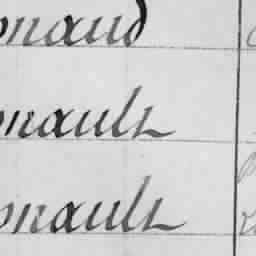 onaud
onault
onault